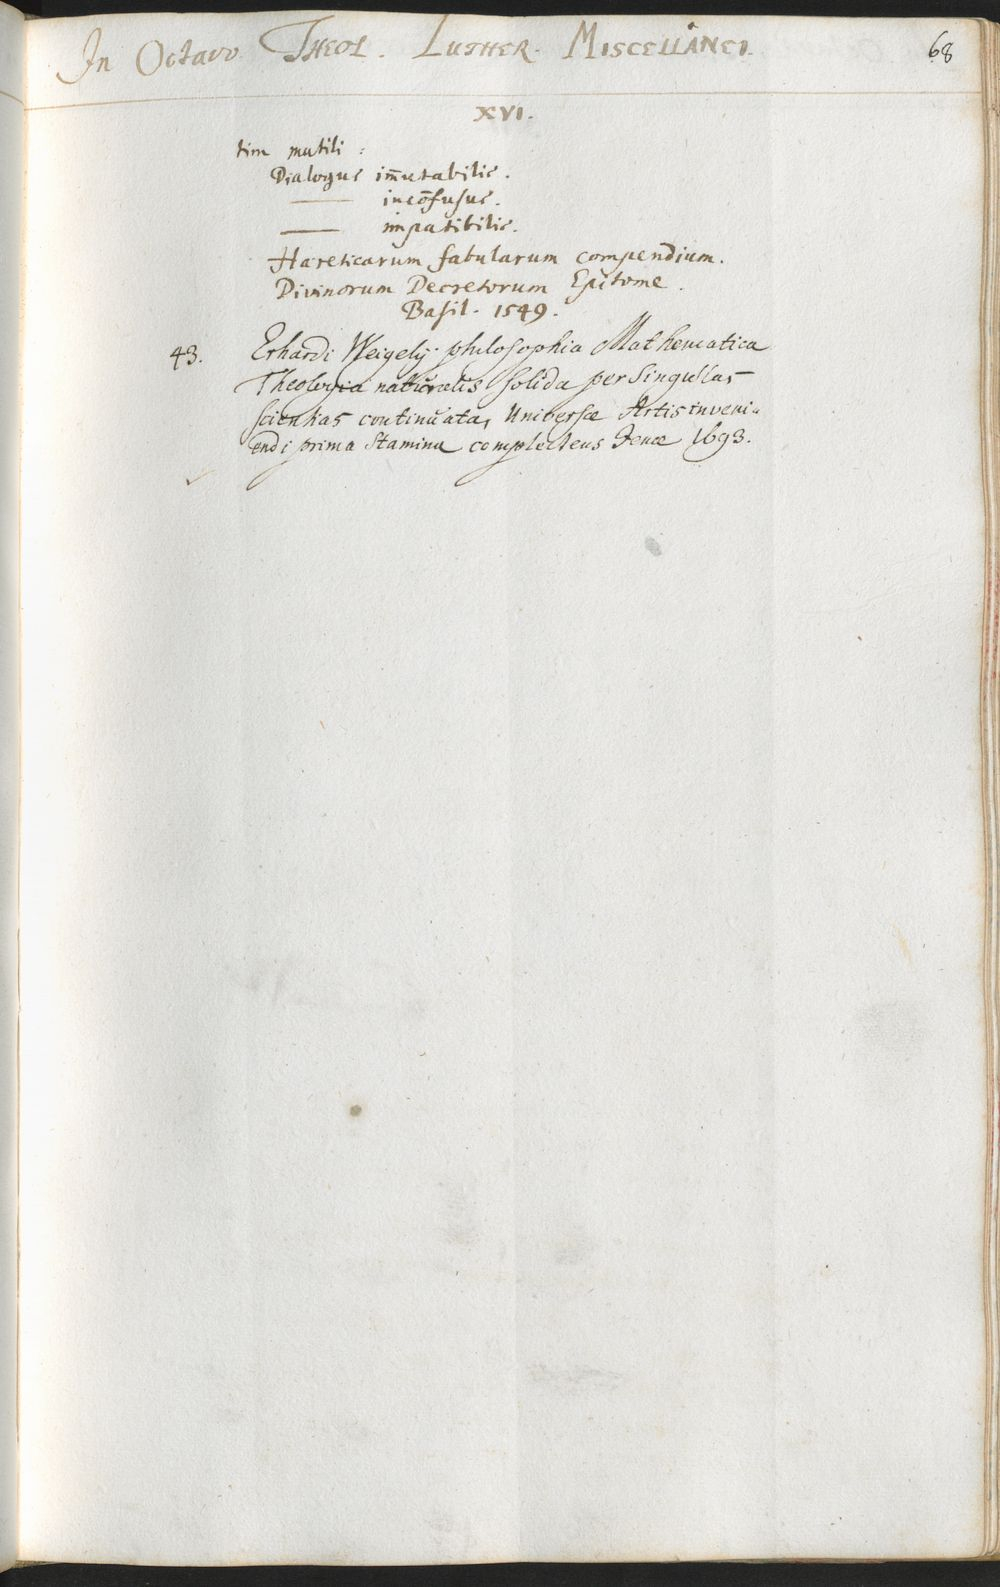 In Octavo THEOL. LUTHER. MISCELLANEI.
68
XVI.
tim mutili :
Dialogus im̄utabilis.
—— incōfusus.
—— impatibilis.
Hæreticarum fabularum compendium.
Divinorum Decretorum Epitome.
Basil. 1549.
43. Erhardi Weigelij philosophia Mathematica
Theologia naturalis solida per Singulas
scientias continuata, Universæ Artis inveni-
endi prima Stamina complectens Jenæ 1693.